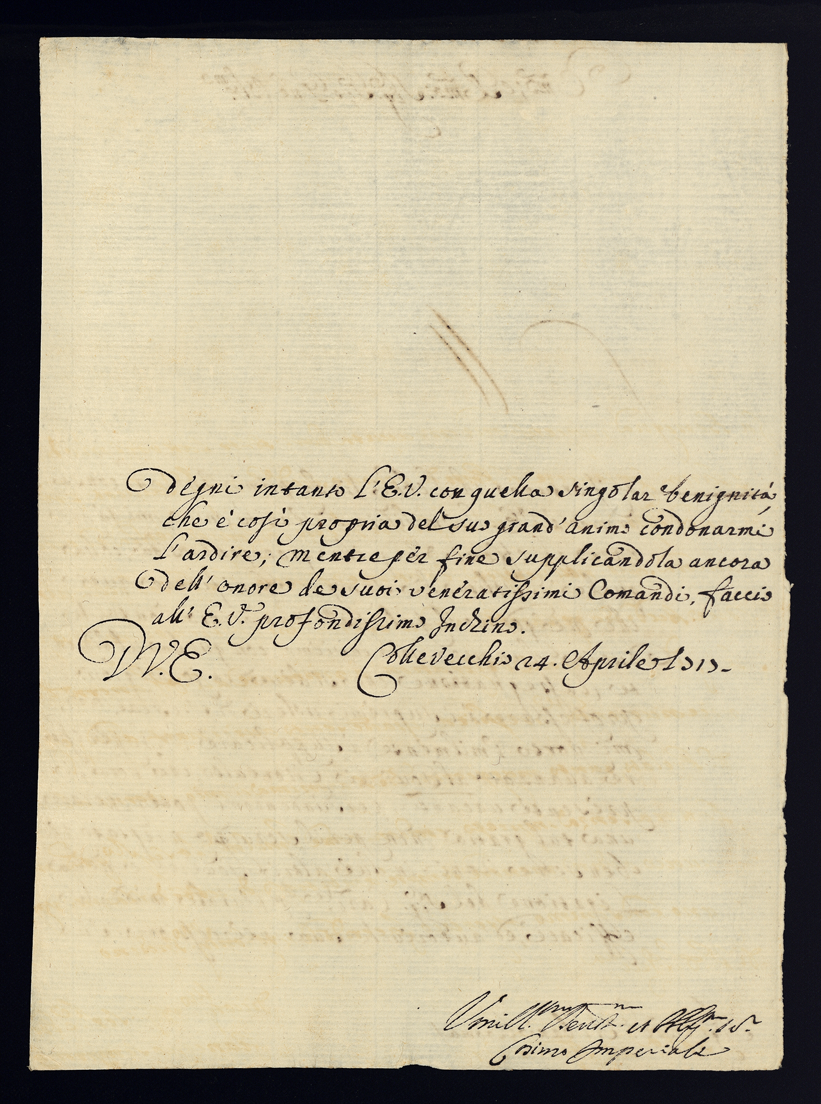 Degni intanto l'E.V. con quella singolar benignità,
che è così propria del suo grand'animo condonarmi
l'ardire; mentre per fine supplicandola ancora
dell'onore de suoi veneratissimi Comandi, faccio
all'E.V. profondissimo Inchino.
D.V.E. Collevecchio 24. Aprile 1713.
Umill.mo et
Cosimo Imperiali